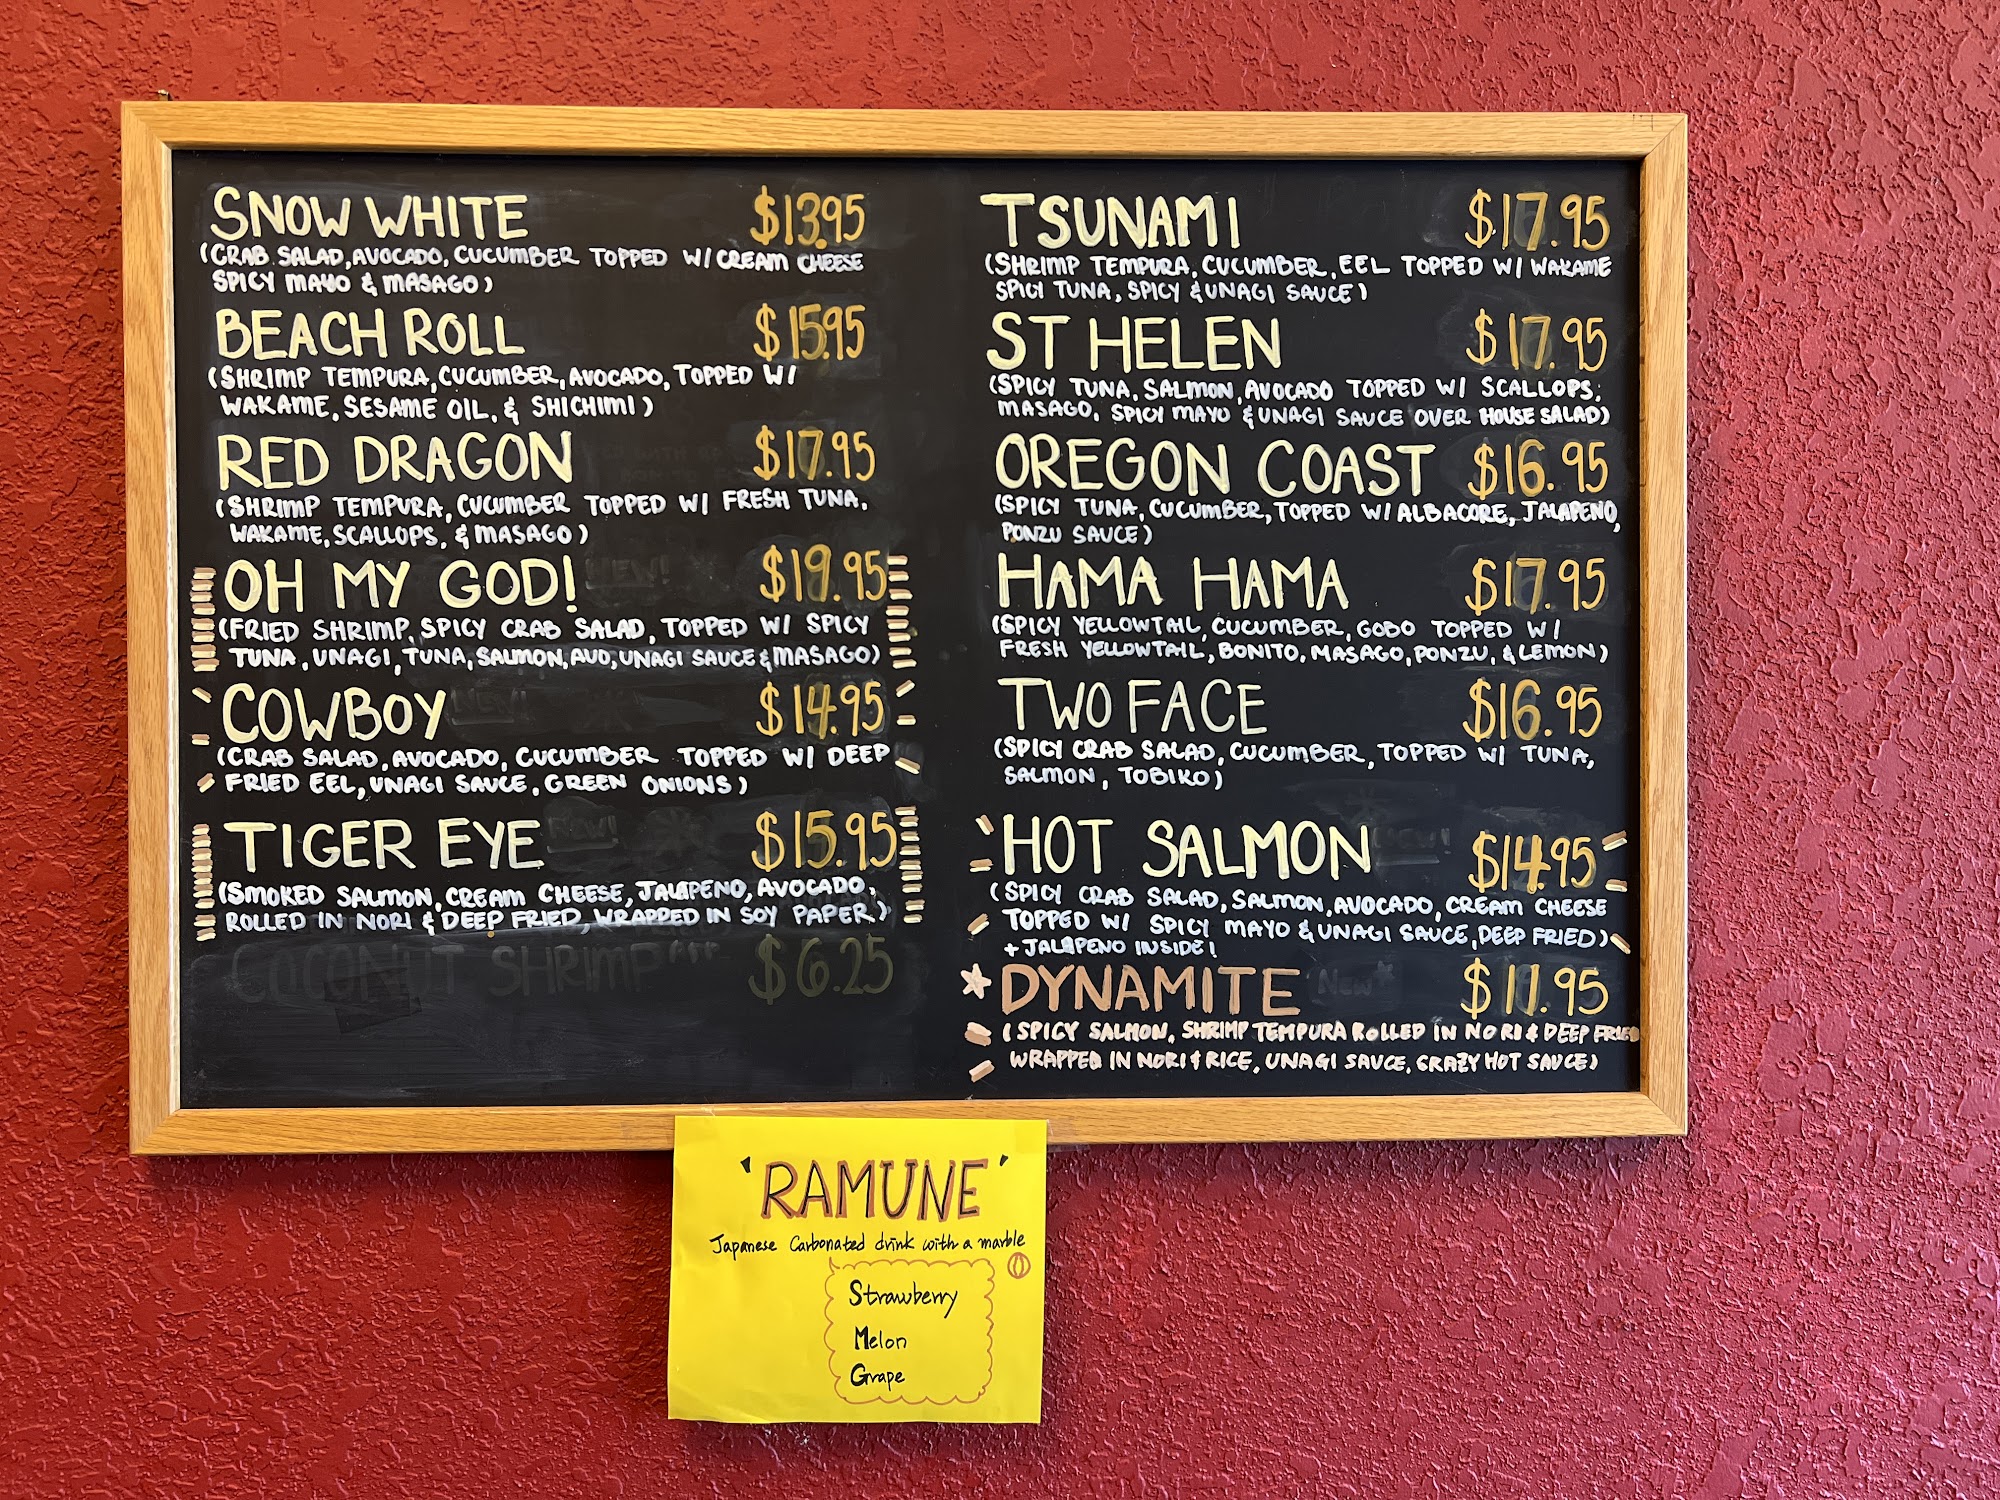 SNOW WHITE $13.95
(CRAB SALAD, AVOCADO, CUCUMBER TOPPED W/ CREAM CHEESE
SPICY MAYO & MASAGO)
BEACH ROLL $15.95
(SHRIMP TEMPURA, CUCUMBER, AVOCADO, TOPPED W/
WAKAME, SESAME OIL, & SHICHIMI)
RED DRAGON $17.95
(SHRIMP TEMPURA, CUCUMBER TOPPED W/ FRESH TUNA,
WAKAME, SCALLOPS, & MASAGO)
OH MY GOD! NEW! $19.95
(FRIED SHRIMP, SPICY CRAB SALAD, TOPPED W/ SPICY
TUNA, UNAGI, TUNA, SALMON, AVO, UNAGI SAUCE & MASAGO)
COWBOY NEW! $14.95
(CRAB SALAD, AVOCADO, CUCUMBER TOPPED W/ DEEP
FRIED EEL, UNAGI SAUCE, GREEN ONIONS)
TIGER EYE New! $15.95
(SMOKED SALMON, CREAM CHEESE, JALAPENO, AVOCADO,
ROLLED IN NORI & DEEP FRIED, WRAPPED IN SOY PAPER)
COCONUT SHRIMP $6.25
TSUNAMI $17.95
(SHRIMP TEMPURA, CUCUMBER, EEL TOPPED W/ WAKAME
SPICY TUNA, SPICY & UNAGI SAUCE)
ST HELEN $17.95
(SPICY TUNA, SALMON, AVOCADO TOPPED W/ SCALLOPS,
MASAGO, SPICY MAYO & UNAGI SAUCE OVER HOUSE SALAD)
OREGON COAST $16.95
(SPICY TUNA, CUCUMBER, TOPPED W/ ALBACORE, JALAPENO,
PONZU SAUCE)
HAMA HAMA $17.95
(SPICY YELLOWTAIL, CUCUMBER, GOBO TOPPED W/
FRESH YELLOWTAIL, BONITO, MASAGO, PONZU, & LEMON)
TWO FACE $16.95
(SPICY CRAB SALAD, CUCUMBER, TOPPED W/ TUNA,
SALMON, TOBIKO)
HOT SALMON New! $14.95
(SPICY CRAB SALAD, SALMON, AVOCADO, CREAM CHEESE
TOPPED W/ SPICY MAYO & UNAGI SAUCE, DEEP FRIED)
+ JALAPENO INSIDE!
DYNAMITE New $11.95
(SPICY SALMON, SHRIMP TEMPURA ROLLED IN NORI & DEEP FRIED
WRAPPED IN NORI & RICE, UNAGI SAUCE, CRAZY HOT SAUCE)
'RAMUNE'
Japanese Carbonated drink with a marble
Strawberry
Melon
Grape